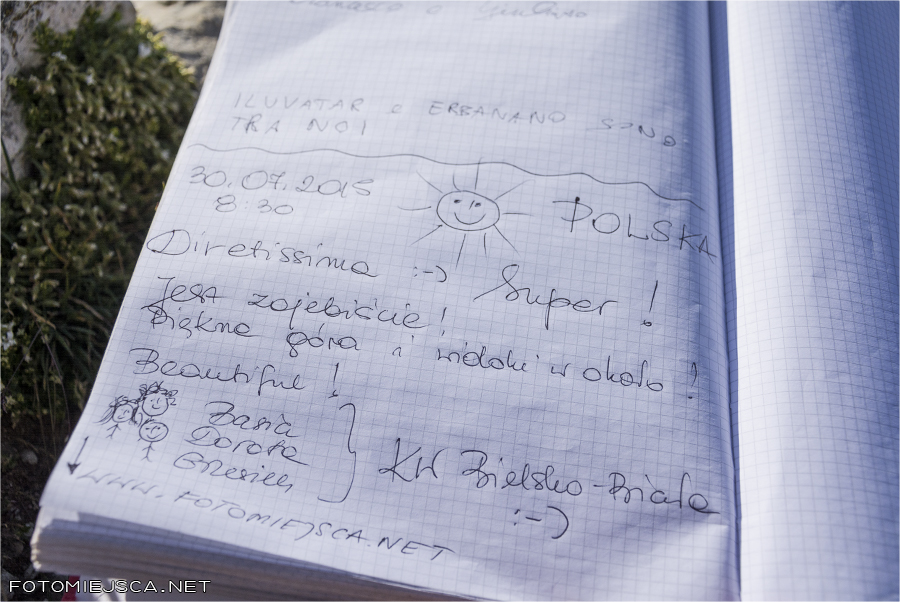 e Giuliano
ILUVATAR e ERBANANO SONO
TRA NOI
30.07.2015
8:30
POLSKA
Diretissima :-) Super!
Jest zajebiście!
Piękna góra i widoki w około!
Beautiful!
Basia
Dorota
Grzesiek
KW Bielsko-Biała
:-)
WWW.FOTOMIEJSCA.NET
FOTOMIEJSCA.NET